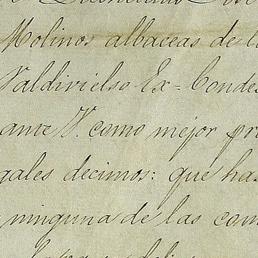 Molinos albaceas de l
Valdivielso Ex-Condes
ante V. como mejor pro
gales decimos: que has
ninguna de las com